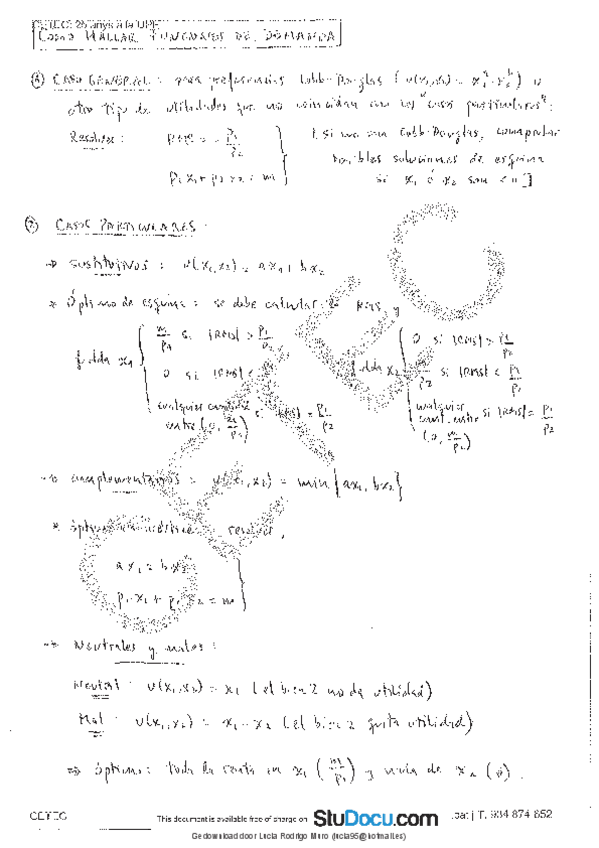 CETEC: 25 anys a la UPF
COMO HALLAR FUNCIONES DE DEMANDA
① CASO GENERAL: para preferencias Cobb-Douglas (u(x₁,x₂) = x₁ᵃ·x₂ᵇ) u
otro tipo de utilidades que no coincidan con los "casos particulares":
Resolver: RMS = - p₁/p₂ [si no son Cobb-Douglas, comprobar
posibles soluciones de esquina
p₁x₁ + p₂x₂ = m si x₁ ó x₂ son < 0]
② CASOS PARTICULARES:
→ SUSTITUTIVOS: u(x₁,x₂) = ax₁ + bx₂
* Óptimo de esquina: se debe calcular la RMS y
f. dda x₁ { m/p₁ si |RMS| > p₁/p₂ f. dda x₂ { 0 si |RMS| > p₁/p₂
0 si |RMS| < m/p₂ si |RMS| < p₁/p₂
cualquier cantidad entre (0, m/p₁) si |RMS| = p₁/p₂ cualquier cant. entre (0, m/p₂) si |RMS| = p₁/p₂
→ complementarios: u(x₁,x₂) = min{ax₁, bx₂}
* óptimo resolver,
ax₁ = bx₂
p₁·x₁ + p₂x₂ = m
→ Neutrales y males:
Neutral: u(x₁,x₂) = x₁ (el bien 2 no da utilidad)
Mal: u(x₁,x₂) = x₁ - x₂ (el bien 2 quita utilidad)
⇒ óptimo: toda la renta en x₁ (m/p₁) y nada de x₂ (0).
CETEC
This document is available free of charge on StuDocu.com .cat | T. 934 874 852
Gedownload door Lucia Rodrigo Muro (lricia95@hotmail.es)